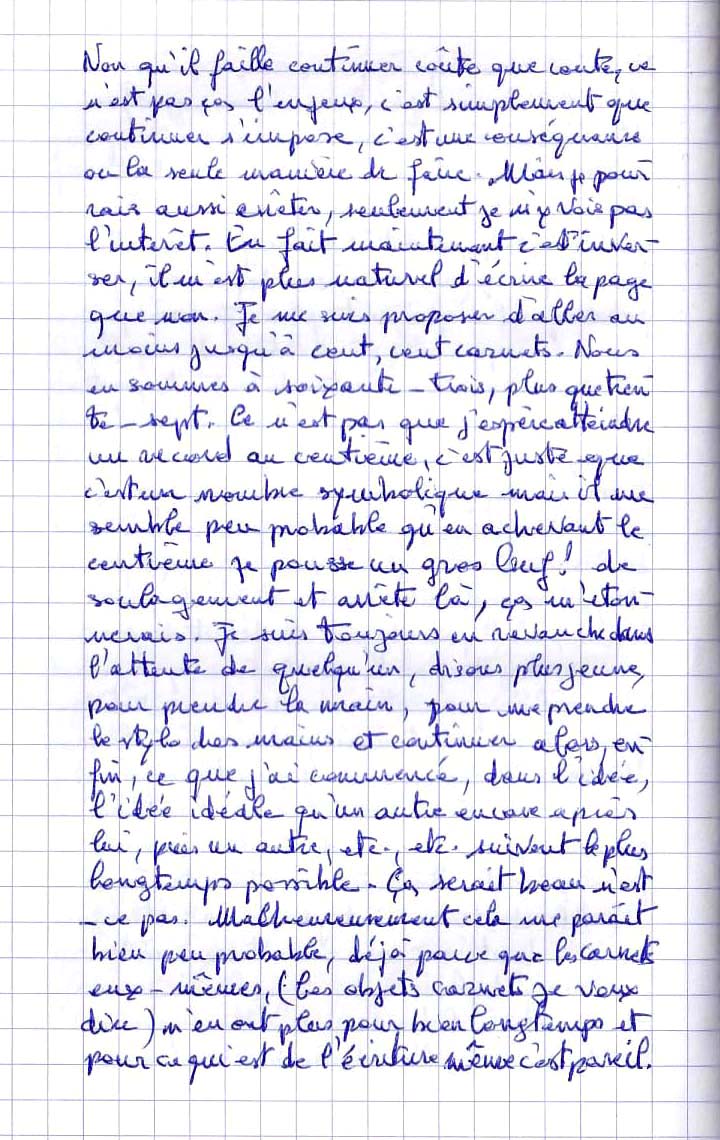 Non qu'il faille continuer coûte que coute, ce
n'est pas ça l'enjeux, c'est simplement que
continuer s'impose, c'est une conséquance
ou la seule manière de faire. Mais je pour-
rais aussi arrêter, seulement je n'y vois pas
l'interêt. En fait maintenant c'est inver-
ser, il m'est plus naturel d'écrire la page
que non. Je me suis proposer d'aller au
moins jusqu'à cent, cent carnets. Nous
en sommes à soixante-trois, plus que tren-
te-sept. Ce n'est pas que j'espère atteindre
un record au centième, c'est juste que
c'est un nombre symbolique mais il me
semble peu probable qu'en achevant le
centième je pousse un gros ! de
soulagement et arrête là, ça m'éton-
nerais. Je suis toujours en revanche dans
l'attente de quelqu'un, disons plus jeune,
pour prendre la main, pour me prendre
le stylo des mains et continuer alors, en-
fin, ce que j'ai commencé, dans l'idée,
l'idée idéale qu'un autre encore après
lui, puis un autre, etc., etc. suivent le plus
longtemps possible. Ça serait beau n'est
-ce pas. Malheureusement cela me paraît
bien peu probable, déjà parce que les carnets
eux-mêmes, (les objets carnets je veux
dire) n'en ont plus pour bien longtemps et
pour ce qui est de l'écriture même c'est pareil.